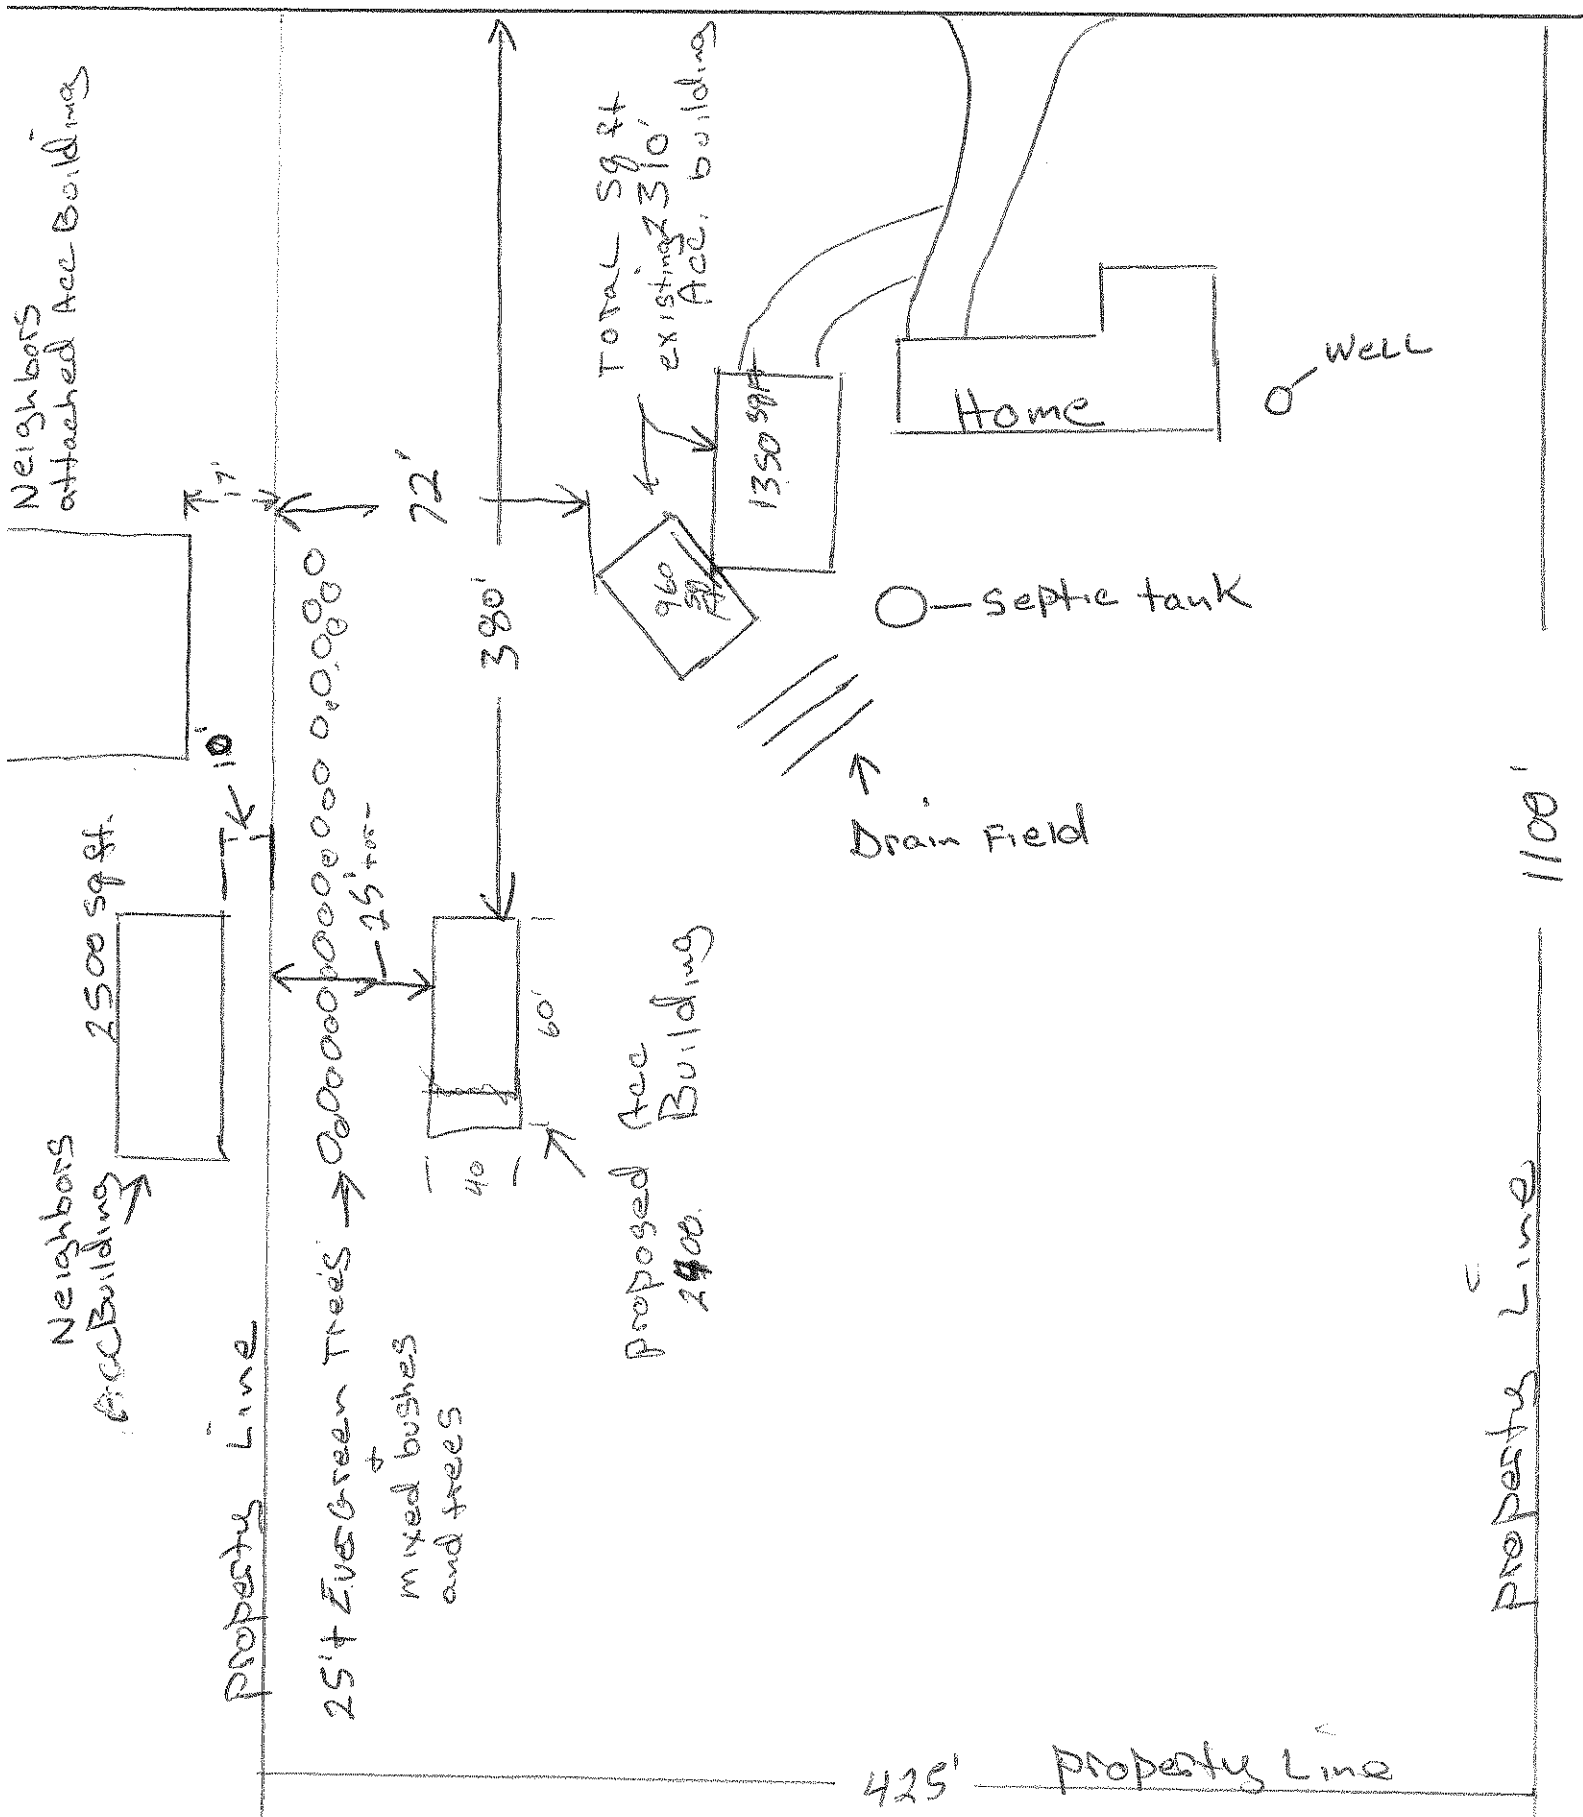 Neighbors
attached Acc Building
17'
Neighbors
Acc Building
2500 sq ft.
10'
property Line
25'+ EverGreen Trees
+
mixed bushes
and trees
25' + or -
72'
380'
Total Sq ft
existing 2310'
Acc. building
1350 sq ft
960
sq
ft
Home
WELL
septic tank
Drain Field
60'
40
proposed Acc
Building
2400
1100'
property Line
425'
property Line